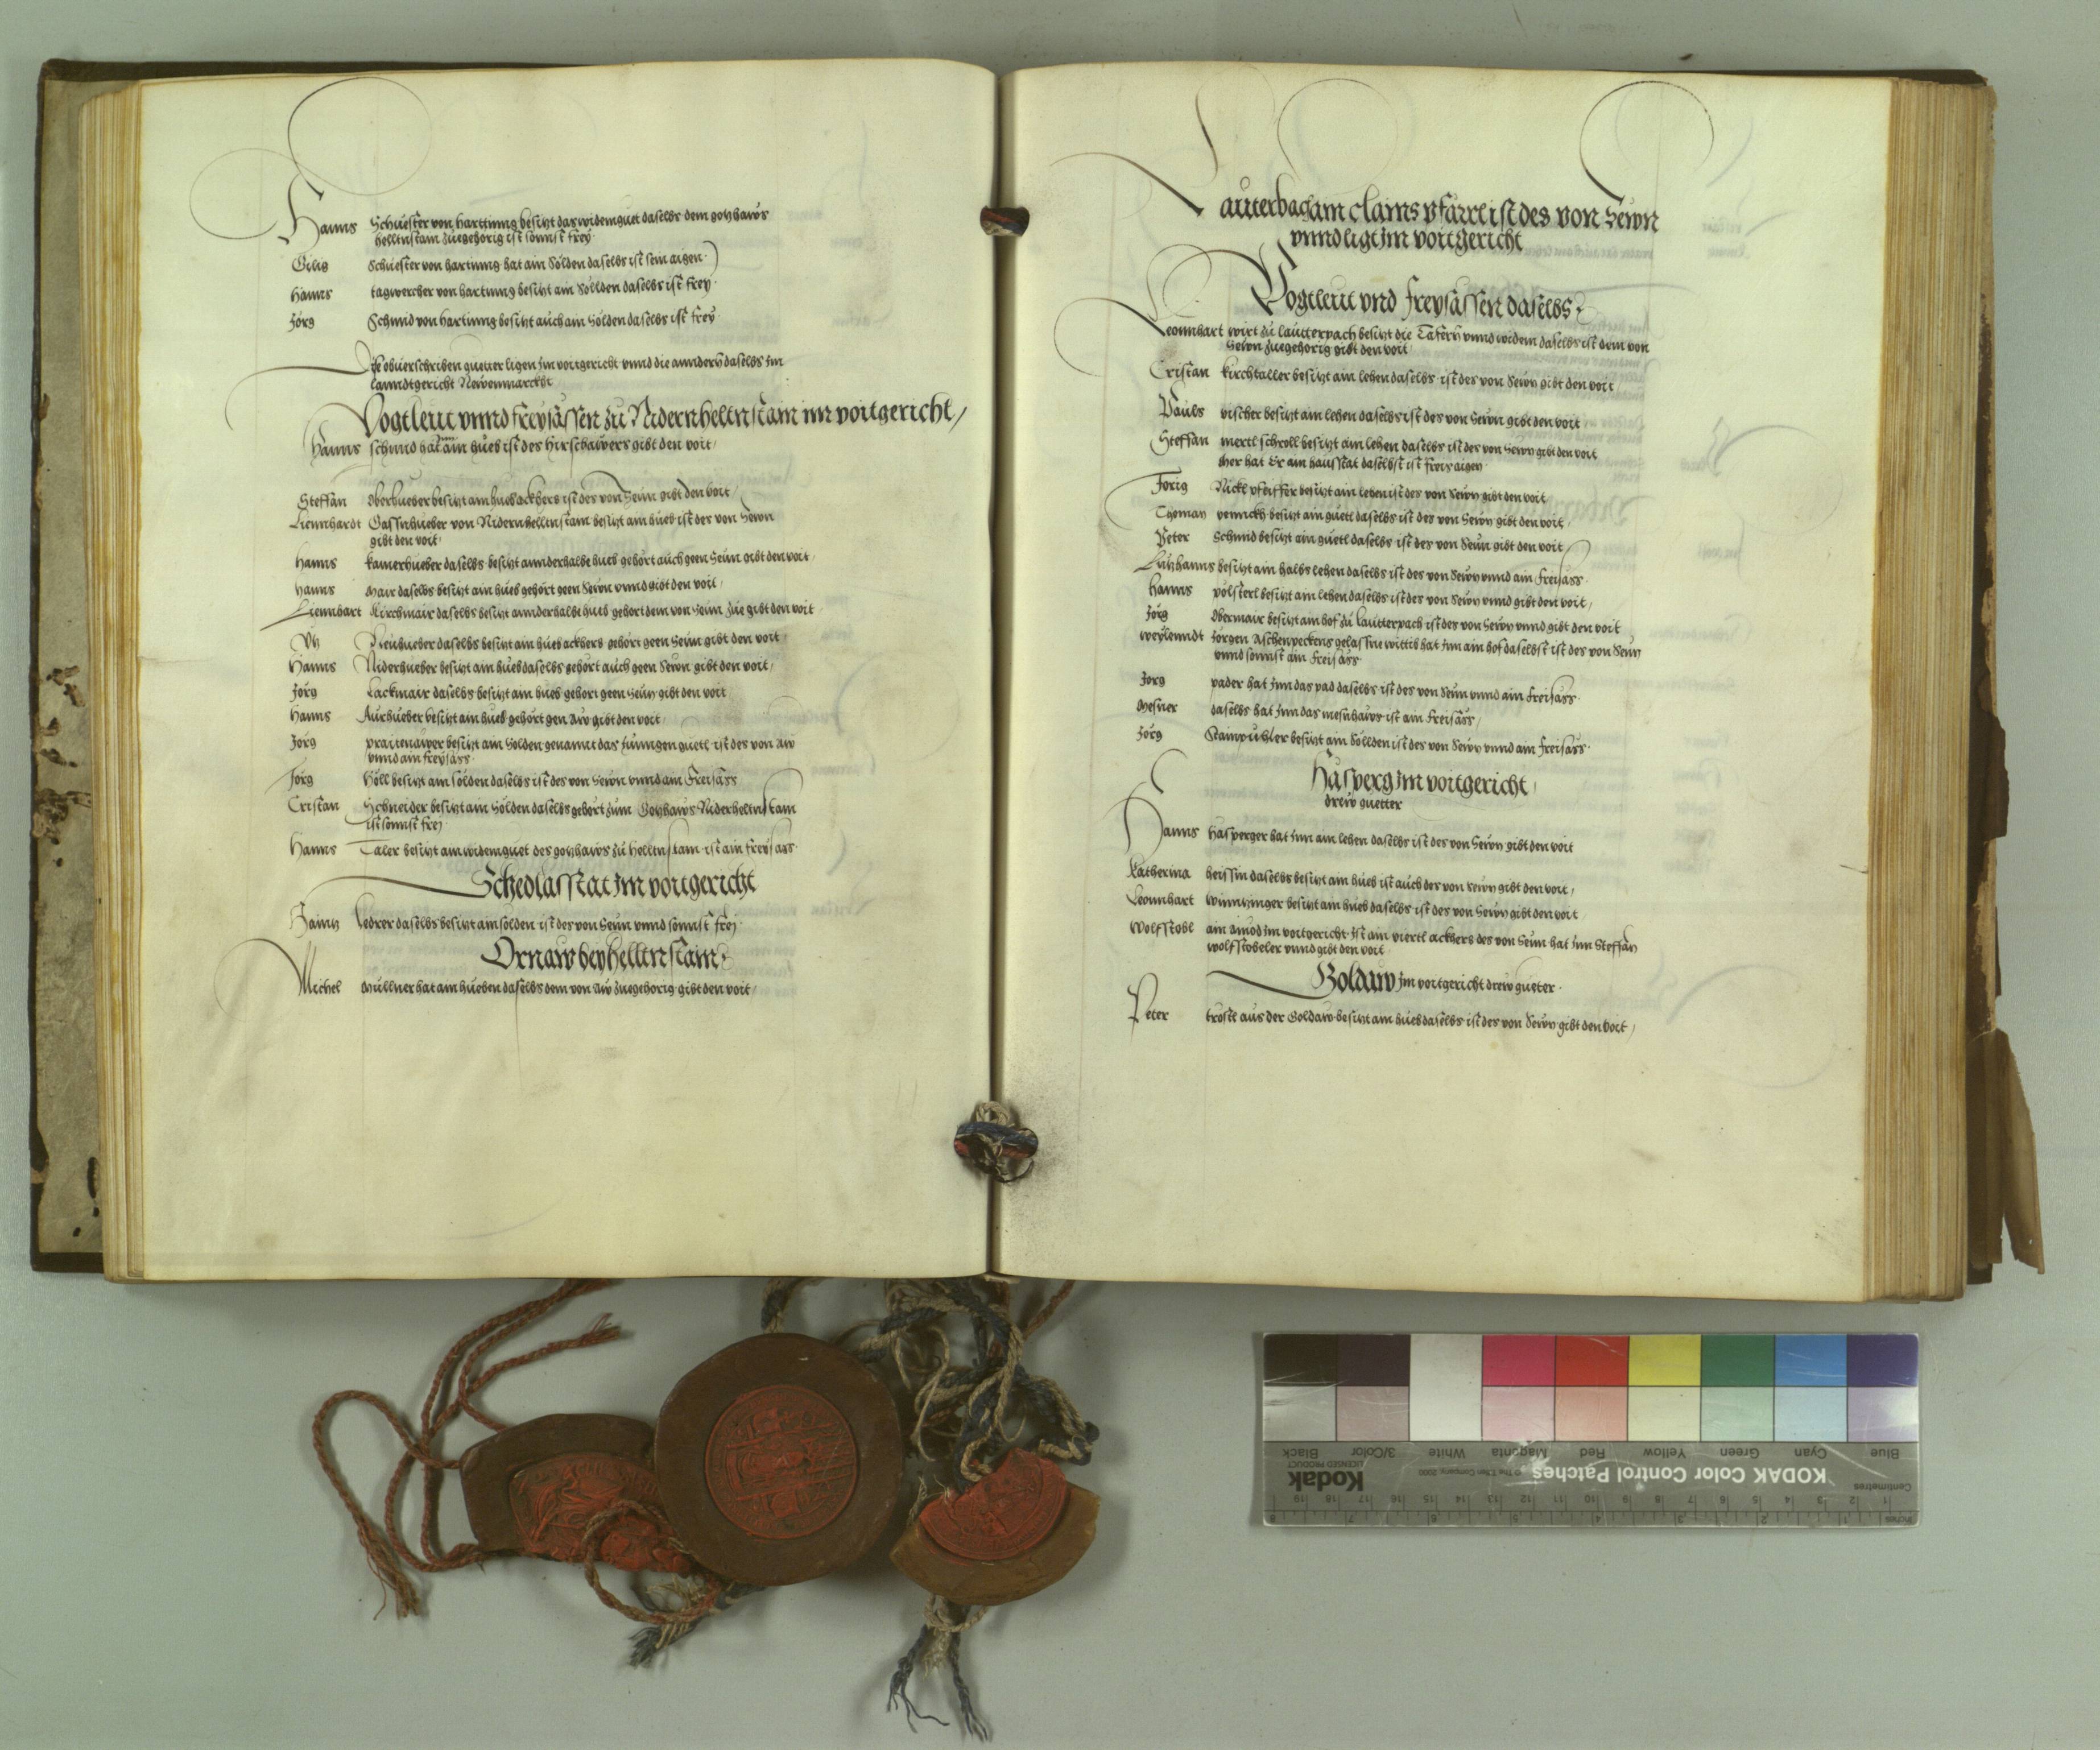 Hanns Schuester von harttinng besitzt das widemguet daselbs dem gotzhaws
helltnstam zuegehorig ist sonnst frey
Gilig Schuester von hartinng hat ain Sölden daselbs ist sein aigen
Hanns tagwercher von hartung besitzt ain Söllden daselbs ist frey
Jörg Schmid von hartinng besitzt auch ain Sölden daselbs ist frey
Die obuerschriben guetter ligen jm voitgericht vnnd die anndern daselbs jm
lanndtgericht Newenmarckht
Vogtleut vnnd freysässen zu Nidernheltnstain im voitgericht
Hanns schmid hat ain hueb ist des Hirschawers gibt den voit
Steffan Oberhueber besitzt ain hueb ackhers ist des von Seun gibt den voit
Liennhardt Gassnhueber von Nidernhelltnstam besitzt ain hueb ist des von Sewn
gibt den voit
Hanns kamerhueber daselbs besitzt annderhalbe hueb gehört auch geen Seun gibt den voit
Hanns Mair daselbs besitzt ain hueb gehort geen Sewn vnnd gibt den voit
Liennhart Kirchmair daselbs besitzt annderhalbe hueb gehort dem von Seun zue gibt den voit
Vtz daselbs besitzt ain hueb ackhers gehört geen Seun gibt den voit
Hanns Niderhueber besitzt ain hueb daselbs gehört auch geen Sewn gibt den voit
Jörg Lackmair daselbs besitzt ain hueb gehort geen Seun gibt den voit
Hanns Aurhueber besitzt ain hueb gehört gen Aw gibt den voit
Jörg praitenawer besitzt ain Solden genannt das guetl ist des von Aw
vnnd ain freysass
Jorg Höll besitzt ain sölden daselbs ist des von Sewn vnnd ain Freisäss
Cristan Schneider besitzt ain Sölden daselbs gehört zum Gotzhaws Niderheltnstam
ist sonnst frey
Hanns Taler besitzt ain widemguet des gotzhaws zu helltnstam ist ain freysäss
Schedlasstat jm voitgericht
Haintz Ledrer daselbs besitzt ain sölden ist des von Seun vnnd sonnst frey
Ornaw bey helltnstain
Michel Müllner hat ain hueben daselbs dem von Aw zuegehorig gibt den voit
Lauterbach am clains pfärrl ist des von Sewn
vnnd ligt jm voitgericht
Vogtleut vnd freysässen daselbs
Leonnhart wirt zu lautterpach besitzt die Tafern vnnd widem daselbs ist dem von
Sewn zuegehorig gibt den voit
Cristan kirchtaller besitzt ain lehen daselbs ist des von Sewn gibt den voit
Pauls vischer besitzt ain lehen daselbs ist des von Sewn gibt den voit
Steffan mertl schroll besitzt ain lehen daselbs ist des von Sewn gibt den voit
Mer hat Er ain hausstat daselbst ist freis aigen
Jorig Nickl pfeiffer besitzt ain lehen ist des von Sewn gibt den voit
Thoman pennckh besitzt ain guetl daselbs ist des von Sewn gibt den voit
Peter Schmid besitzt ain guetl daselbs ist des von Seun gibt den voit
Lutzhanns besitzt ain halbs lehen daselbs ist des von Sewn vnnd ain freisäss
Hanns pölsterl besitzt ain lehen daselbs ist des von Sewn vnnd gibt den voit
Jörg Obermair besitzt ain hof zu lautterpach ist des von Sewn vnnd gibt den voit
Weylenndt Jörgen Aschenpeckens gelassne wittib hat jnn ain hof daselbst ist des von Seun
vnnd sonnst ain freisäss
Jorg pader hat jnn das pad daselbs ist des von Seun vnnd ain freisäss
Mesner daselbs hat jnn das mesnhaws ist ain freisäss
Jörg Stainpuhler besitzt ain Söllden ist des von Sewn vnnd ain freisäss
Häsperg jm voitgericht
drew guetter
Hanns Häsperger hat jnn ain lehen daselbs ist des von Sewn gibt den voit
Katherina heissin daselbs besitzt ain hueb ist auch des von Sewn gibt den voit
Leonnhart Wintzinger besitzt ain hueb daselbs ist des von Sewn gibt den voit
Wolfstobl ain ainöd jm voitgericht ist ain viertl ackhers des von Seun hat jnn Steffan
wolfstobeler vnnd gibt den voit
Goldaw jm voitgericht drew gueter
Peter tröstl aus der Goldaw besitzt ain hueb daselbs ist des von Sewn gibt den voit
Black 3/Color White Magenta Red Yellow Green Cyan Blue
Kodak
LICENSED PRODUCT
© The Tiffen Company, 2000
KODAK Color Control Patches
Centimetres
1 2 3 4 5 6 7 8 9 10 11 12 13 14 15 16 17 18 19
Inches